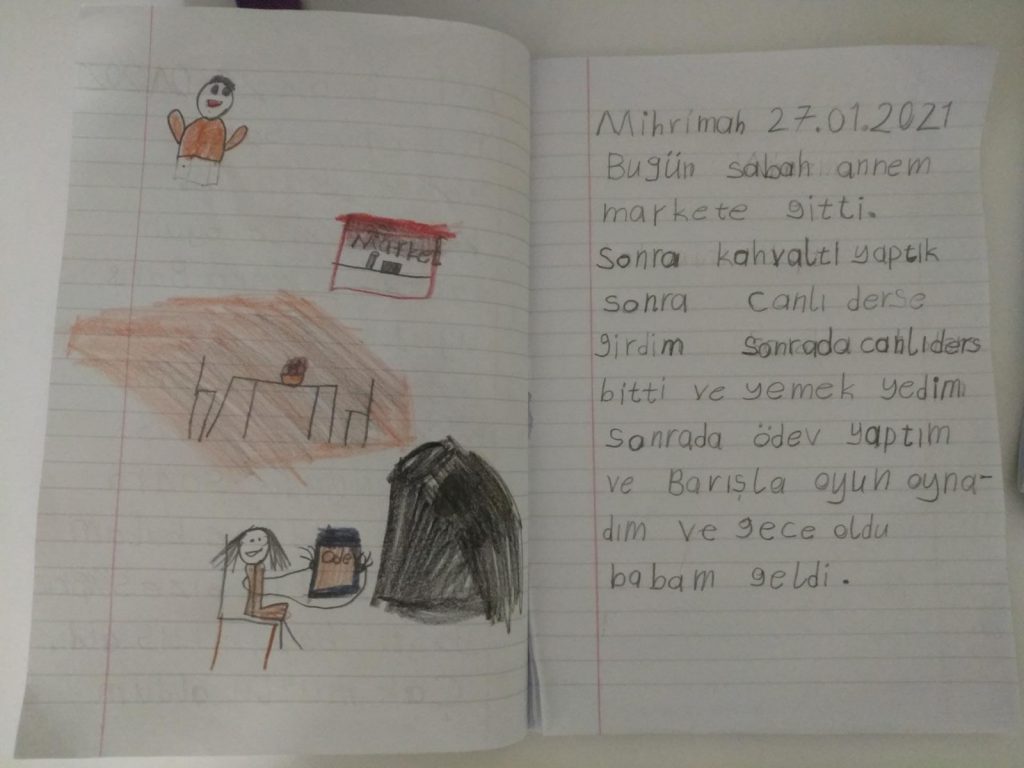 Market
Ödev
Mihrimah 27.01.2021
Bugün sabah annem
markete gitti.
Sonra kahvaltı yaptık
sonra canlı derse
girdim sonrada canlıders
bitti ve yemek yedim
sonrada ödev yaptım
ve Barışla oyun oyna-
dım ve gece oldu
babam geldi.